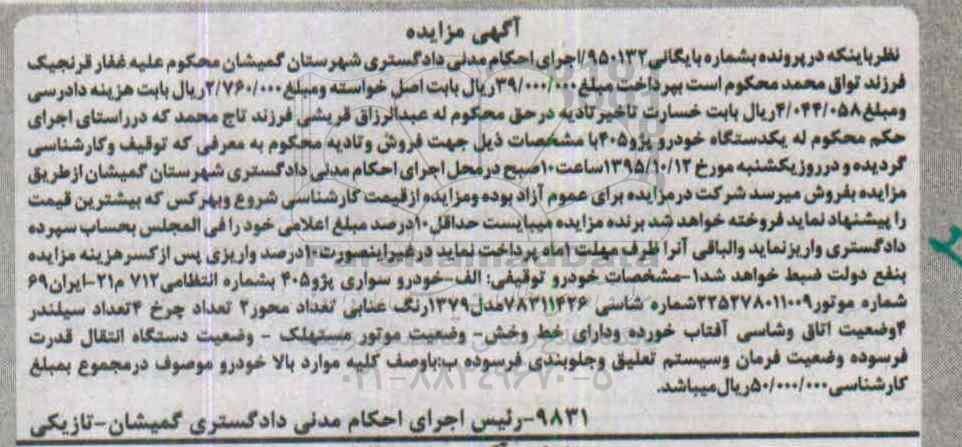 آگهی مزایده
نظر باینکه در پرونده بشماره بایگانی ۹۵۰۱۳۲/اجرای احکام مدنی دادگستری شهرستان گمیشان محکوم علیه غفار قرنجیک
فرزند تواق محمد محکوم است بپرداخت مبلغ ۳۹/۰۰۰/۰۰۰ریال بابت اصل خواسته ومبلغ ۲/۷۶۰/۰۰۰ریال بابت هزینه دادرسی
ومبلغ ۴/۰۴۴/۰۵۸ریال بابت خسارت تاخیر تادیه درحق محکوم له عبدالرزاق قریشی فرزند تاج محمد که درراستای اجرای
حکم محکوم له یکدستگاه خودرو پژو۴۰۵با مشخصات ذیل جهت فروش وتادیه محکوم به معرفی که توقیف وکارشناسی
گردیده و درروزیکشنبه مورخ ۱۳۹۵/۱۰/۱۲ساعت۱۰صبح درمحل اجرای احکام مدنی دادگستری شهرستان گمیشان ازطریق
مزایده بفروش میرسد شرکت درمزایده برای عموم آزاد بوده ومزایده ازقیمت کارشناسی شروع وبهرکس که بیشترین قیمت
را پیشنهاد نماید فروخته خواهد شد برنده مزایده میبایست حداقل ۱۰درصد مبلغ اعلامی خود را فی المجلس بحساب سپرده
دادگستری واریزنماید والباقی آنرا ظرف مهلت ۱ماه پرداخت نماید درغیراینصورت ۱۰درصد واریزی پس ازکسرهزینه مزایده
بنفع دولت ضبط خواهد شد۱-مشخصات خودرو توقیفی: الف-خودرو سواری پژو۴۰۵ بشماره انتظامی ۷۱۲ م۲۱-ایران۶۹
شماره موتور۲۲۵۲۷۸۰۱۱۰۰۹شماره شاسی ۷۸۳۱۱۴۲۶مدل۱۳۷۹رنگ عنابی تعداد محور۲ تعداد چرخ ۴تعداد سیلندر
۴وضعیت اتاق وشاسی آفتاب خورده ودارای خط وخش- وضعیت موتور مستهلک - وضعیت دستگاه انتقال قدرت
فرسوده وضعیت فرمان وسیستم تعلیق وجلوبندی فرسوده ب:باوصف کلیه موارد بالا خودرو موصوف درمجموع بمبلغ
کارشناسی ۵۰/۰۰۰/۰۰۰ریال میباشد.
۹۸۳۱-رئیس اجرای احکام مدنی دادگستری گمیشان-تازیکی
۰۲۱-۸۸۳۴۹۶۷۰-۵